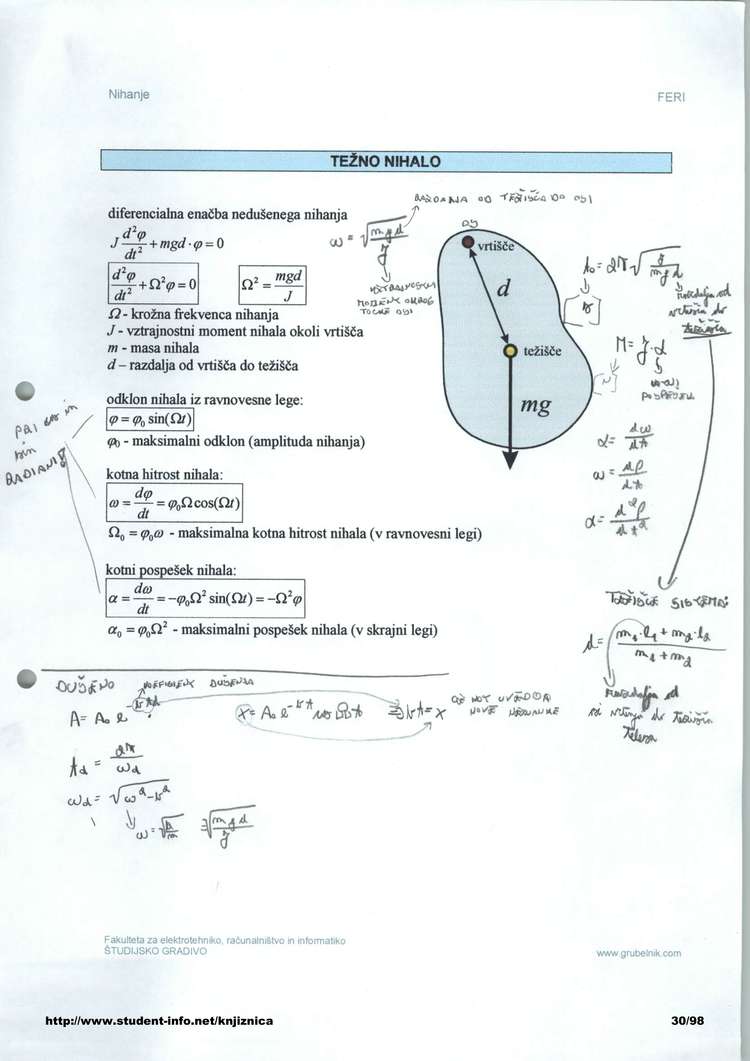 Nihanje
FERI
TEŽNO NIHALO
diferencialna enačba nedušenega nihanja
J d²φ/dt² + mgd·φ = 0
d²φ/dt² + Ω²φ = 0
Ω² = mgd/J
Ω - krožna frekvenca nihanja
J - vztrajnostni moment nihala okoli vrtišča
m - masa nihala
d – razdalja od vrtišča do težišča
odklon nihala iz ravnovesne lege:
φ = φ₀ sin(Ωt)
φ₀ - maksimalni odklon (amplituda nihanja)
kotna hitrost nihala:
ω = dφ/dt = φ₀Ωcos(Ωt)
Ω₀ = φ₀ω - maksimalna kotna hitrost nihala (v ravnovesni legi)
kotni pospešek nihala:
α = dω/dt = -φ₀Ω² sin(Ωt) = -Ω²φ
α₀ = φ₀Ω² - maksimalni pospešek nihala (v skrajni legi)
RAZDALJA OD TEŽIŠČA DO OSI
ω = √(mgd/J)
OS
vrtišče
d
težišče
mg
MOMENT OKROG
TOČKE OSI
t₀ = 2π√(J/mgd)
razdalja od
vrtišča do
težišča
M = J·α
POSPEŠEK
α = dω/dt
ω = dφ/dt
α = d²φ/dt²
PRI cos in
sin
RADIANI
TEŽIŠČE SISTEMA:
d = (m₁·l₁ + m₂·l₂)/(m₁ + m₂)
Razdalja od
osi vrtenja do težišča
telesa
DUŠENO
KOEFICIENT DUŠENJA
A = A₀ e
x = A₀ e
NOVE NEZNANKE
t_d = 2π/ω_d
ω_d = √(ω² - β²)
ω = √(k/m)
= √(mgd/J)
Fakulteta za elektrotehniko, računalništvo in informatiko
ŠTUDIJSKO GRADIVO
www.grubelnik.com
http://www.student-info.net/knjiznica
30/98